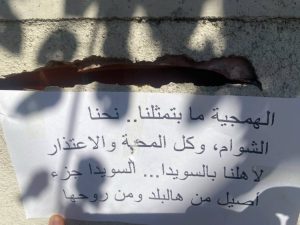 الهمجية ما بتمثلنا.. نحنا
الشوام، وكل المحبة والاعتذار
لاهلنا بالسويدا... السويدا جزء
أصيل من هالبلد ومن روحها